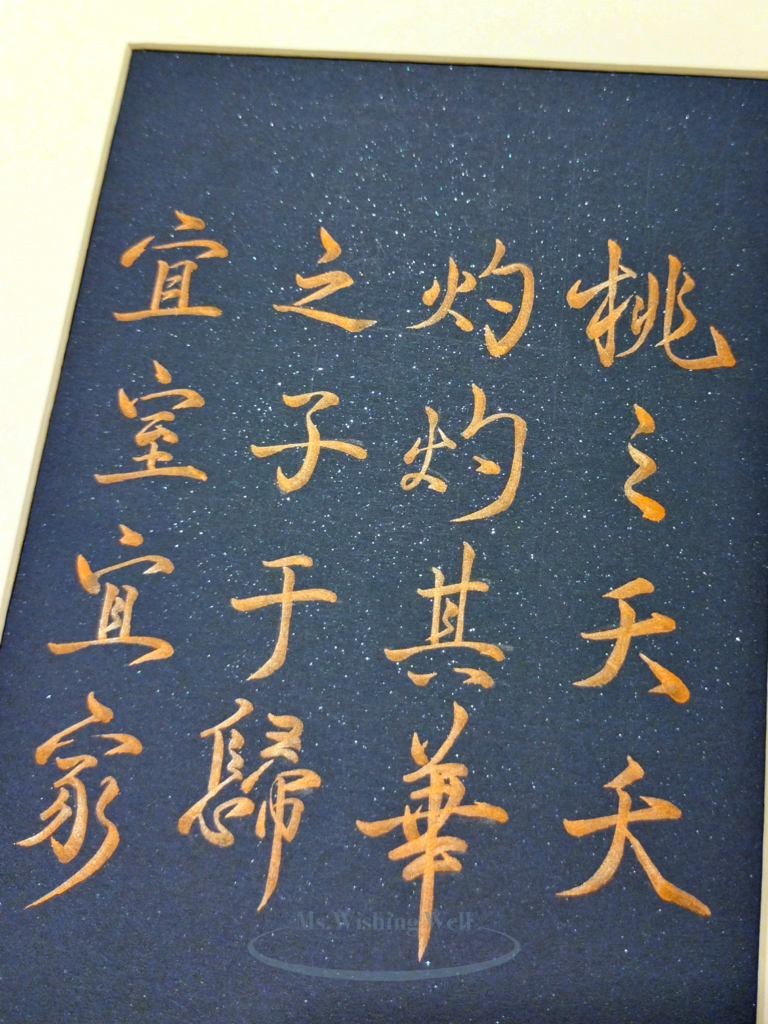 桃之夭夭
灼灼其華
之子于歸
宜室宜家
Ms.Wishing Well